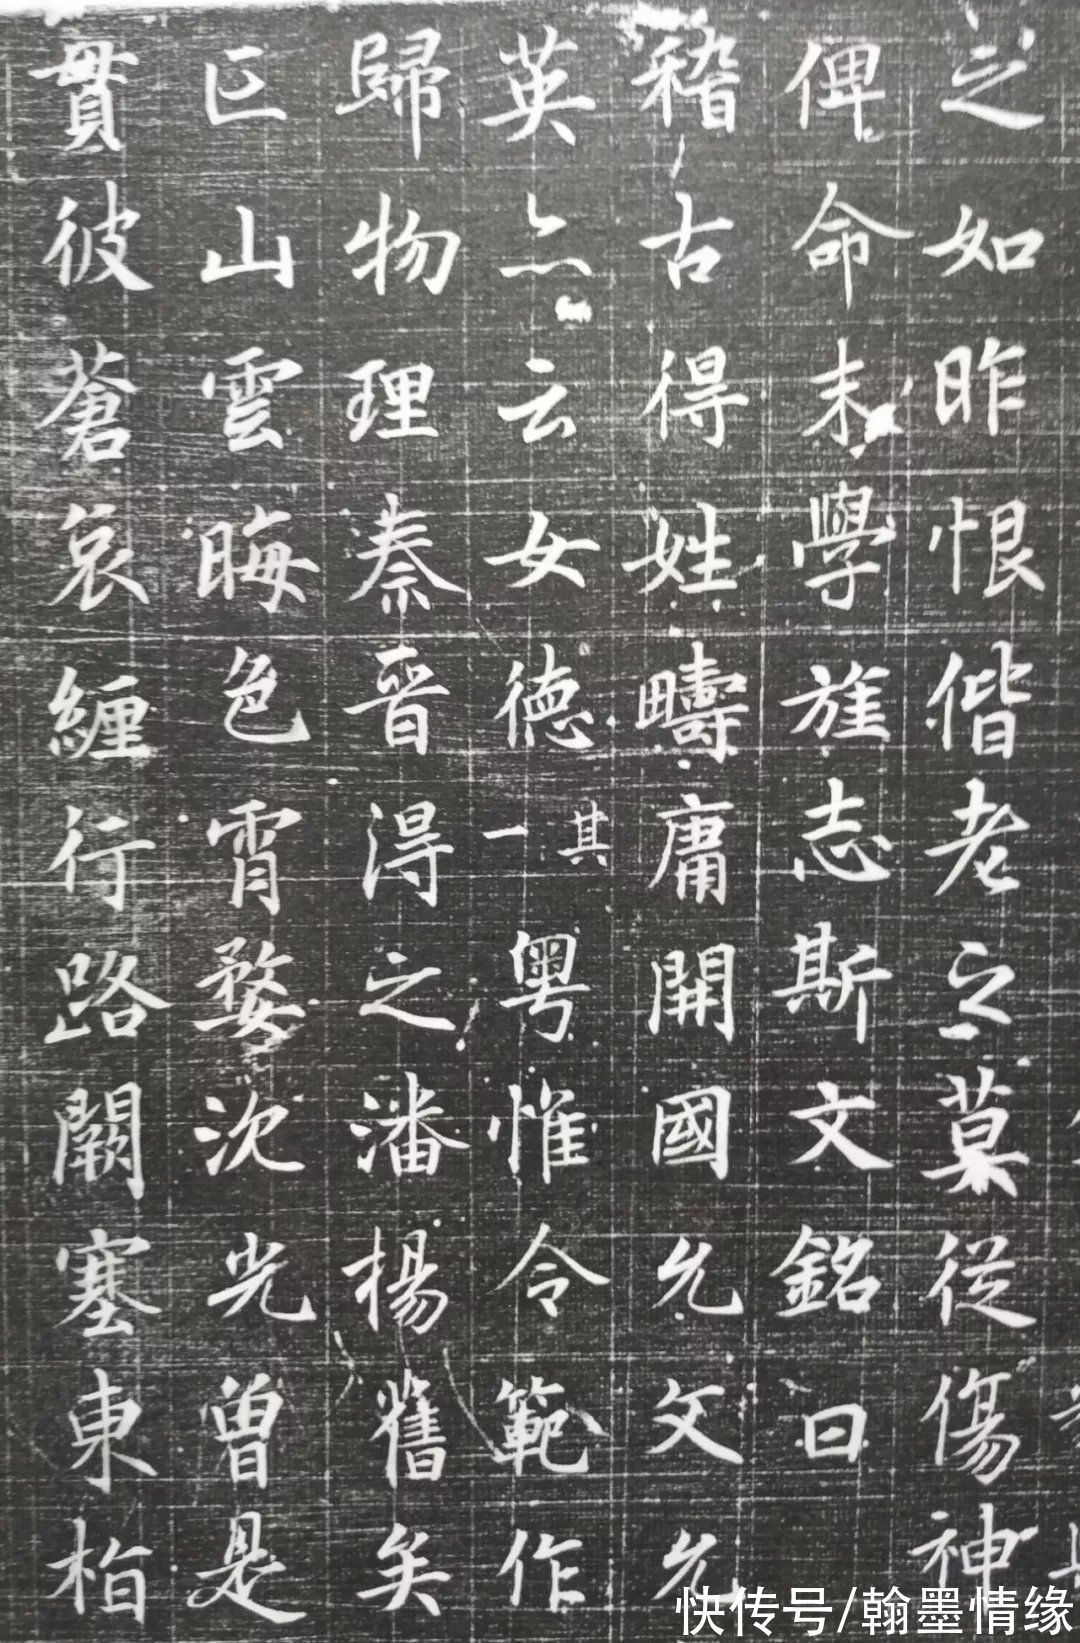 之如昨恨偕老之莫從傷神
俾命末學旌志斯文銘曰
稽古得姓疇庸開國允文允
英亦云女德其一粵惟令範作
歸物理秦晉淂之潘楊舊矣
亡山雲晦色宵婺沈光曾是
貫彼蒼哀纏行路闕塞東柏
快传号/翰墨情缘